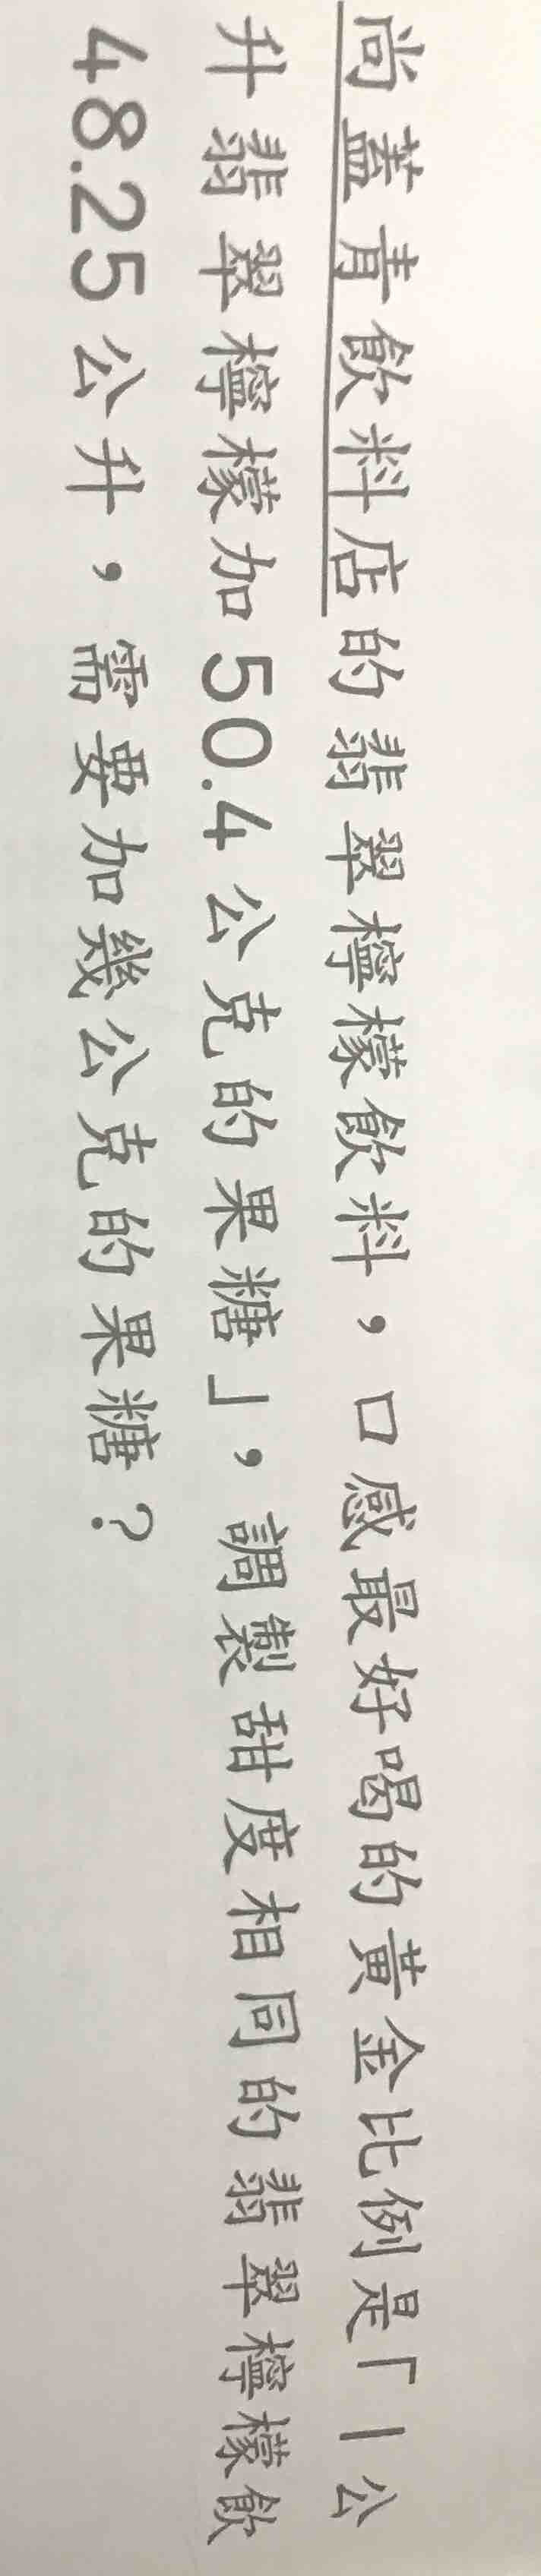 尚蓋青飲料店的翡翠檸檬飲料，口感最好喝的黃金比例是「1公
升翡翠檸檬加50.4公克的果糖」，調製甜度相同的翡翠檸檬飲
48.25公升，需要加幾公克的果糖？